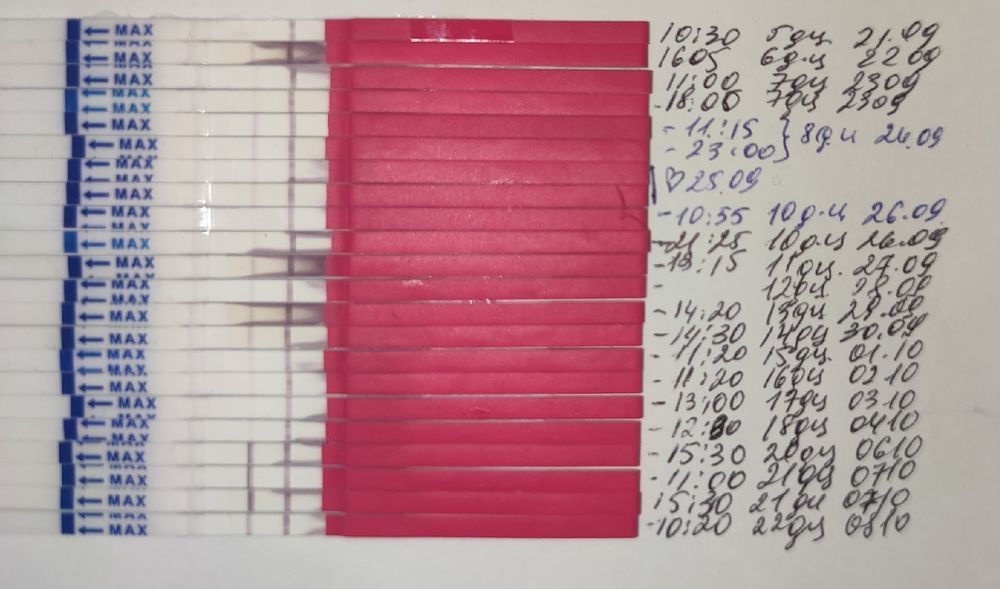 MAX 10:30 5дц 21.09
MAX 1605 6дц 2209
MAX 11:00 7дц 2309
MAX -18:00 7дц 2309
MAX -11:15 } 8дц 24.09
MAX -23:00
MAX
MAX ♡ 25.09
MAX -10:55 10дц 26.09
MAX -21:25 10дц 26.09
MAX -13:15 11дц. 27.09
MAX - 12дц 28.09
MAX -14:20 13дц 29.09
MAX -14:30 14дц 30.09
MAX -11:20 15дц 01.10
MAX -11:20 16дц 02.10
MAX -13:00 17дц 0310
MAX -12:30 18дц 0410
MAX -15:30 20дц 0610
MAX -11:00 21дц 0710
MAX 15:30 21дц 0710
MAX -10:20 22дц 0810